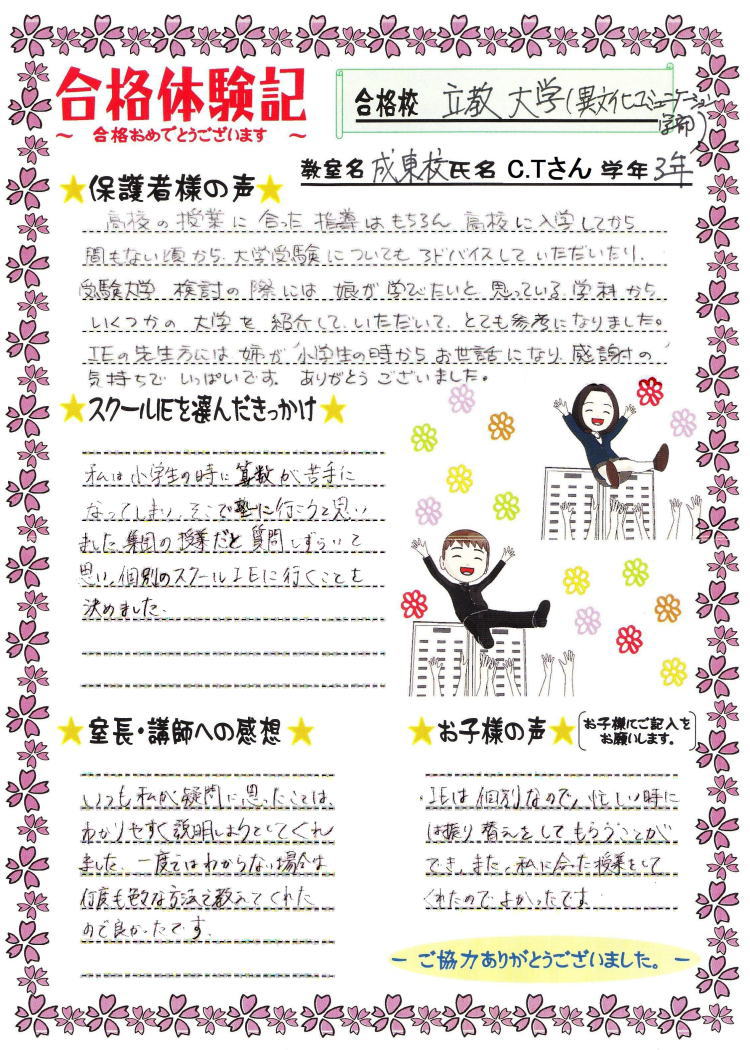 合格体験記
～ 合格おめでとうございます ～
合格校 立教大学(異文化コミュニケーション学部)
教室名 成東校 氏名 C.Tさん 学年 3年
保護者様の声
高校の授業に合った指導はもちろん高校に入学してから
間もない頃から、大学受験についてもアドバイスしていただいたり、
受験大学検討の際には娘が学びたいと思っている学科から
いくつかの大学を紹介していただいて、とても参考になりました。
IEの先生方には姉が小学生の時からお世話になり感謝の
気持ちでいっぱいです。ありがとうございました。
スクールIEを選んだきっかけ
私は小学生の時に算数が苦手に
なってしまい、そこで塾に行こうと思い
ました。集団の授業だと質問しずらいと
思い、個別のスクールIEに行くことを
決めました。
室長・講師への感想
いつも私が疑問に思ったことは、
わかりやすく説明しようとしてくれ
ました。一度ではわからない場合は
何度も色々な方法で教えてくれた
ので良かったです。
お子様の声
お子様にご記入を
お願いします。
・IEは個別なので、忙しい時に
は振り替えをしてもらうことが
でき、また、私に合った授業をして
くれたのでよかったです。
－ ご協力ありがとうございました。 －